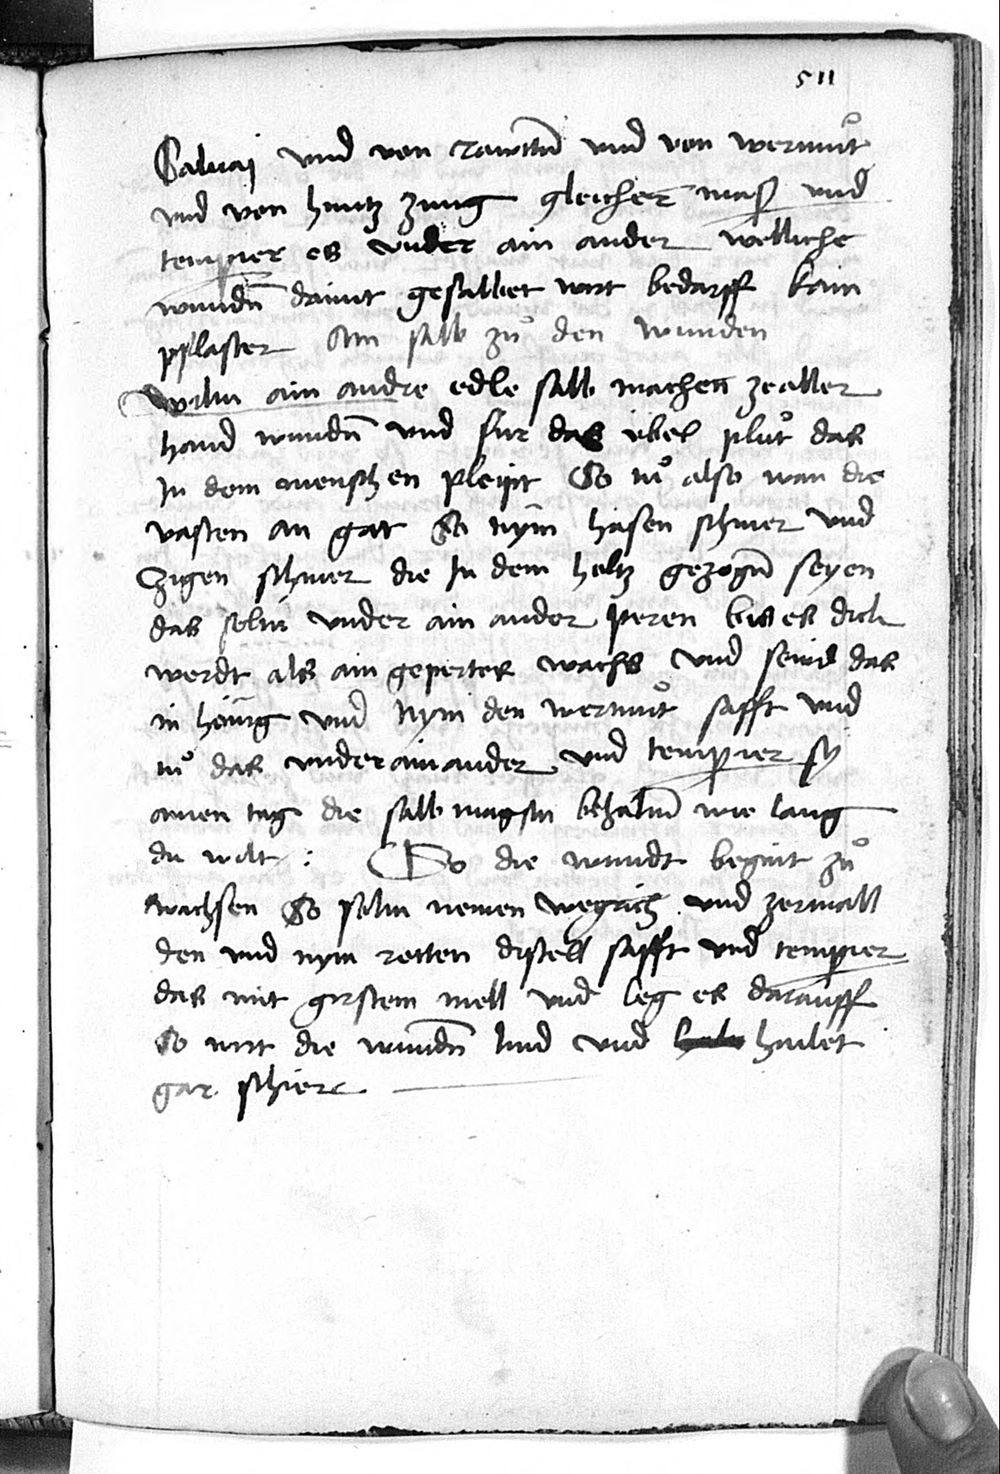 511
Saluaj vnd von rawttñ vnd von wermůt
vnd von huntz zung gleicher mass vnd
tempier es vnder ain ander welliche
wundñ damit gesalbet wirt bedarff kain
pflaster Ain salb zů den wunden
Wiltu ain andre edle salb machen ze aller
hand wundñ vnd fur das übel plůt das
In dem menschen pleipt So tů also wan die
vasten an gat So nym hasen schmer vnd
Zigen schmer die In dem holtz gezogñ seyen
das soltu vnder ain ander peren bis es dick
werdt als ain gepertes wachs vnd seud das
in honig vnd Nym den wermůt safft vnd
tů das vnder ain ander vnd tempier sy
ainen tag die salb magstu behaltñ wie lang
du wilt : So die wundt begint zů
wachsen So soltu nemen wegrich vnd zermall
den vnd nym rotten distell safft vnd tempier
das mit girstem mell vnd leg es darauff
So wirt die wundñ lind vnd hailet
gar schiere